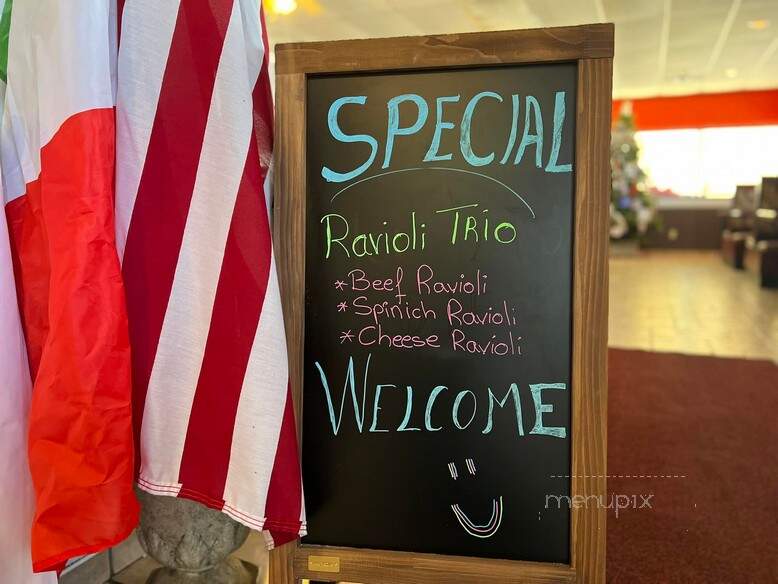 SPECIAL
Ravioli TRIO
*Beef Ravioli
*Spinich Ravioli
*Cheese Ravioli
WELCOME
menupix